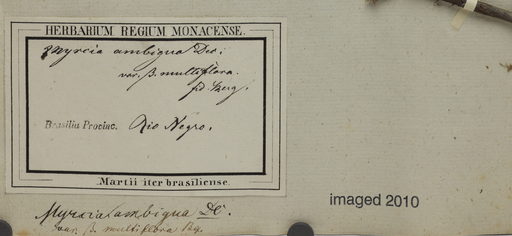 HERBARIUM REGIUM MONACENSE.
Myrcia ambigua Dec:
var. β. multiflora.
fid. Berg.
Brasilia Provinc. Rio Negro.
Martii iter brasiliense.
Myrcia ambigua DC.
var. β. multiflora Bg.
imaged 2010